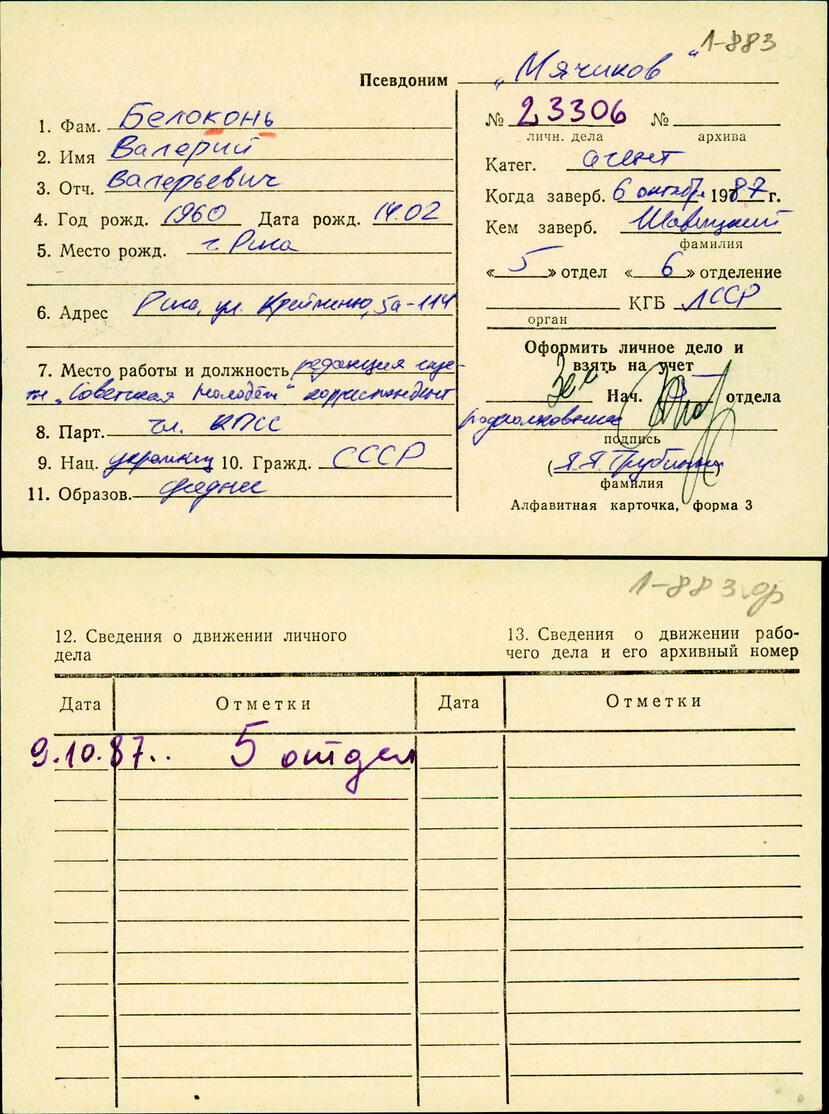 1-883
Псевдоним „Мячиков“
1. Фам. Белоконь
2. Имя Валерий
3. Отч. Валерьевич
4. Год рожд. 1960 Дата рожд. 14.02
5. Место рожд. г. Рига
6. Адрес Рига, ул. 5а-114
7. Место работы и должность редакция газе-
ты „Советская молодёжь“ корреспондент
8. Парт. чл. КПСС
9. Нац. украинец 10. Гражд. СССР
11. Образов. среднее
№ 23306 №
личн. дела архива
Катег. агент
Когда заверб. 6 октября 1987 г.
Кем заверб. Шавецкий
фамилия
« 5 » отдел « 6 » отделение
КГБ ЛССР
орган
Оформить личное дело и
взять на учет
Зам Нач. 5 отдела
подполковник
подпись
(Я.Я. )
фамилия
Алфавитная карточка, форма 3
1-883
12. Сведения о движении личного
дела
13. Сведения о движении рабо-
чего дела и его архивный номер
Дата Отметки Дата Отметки
9.10.87.. 5 отдел